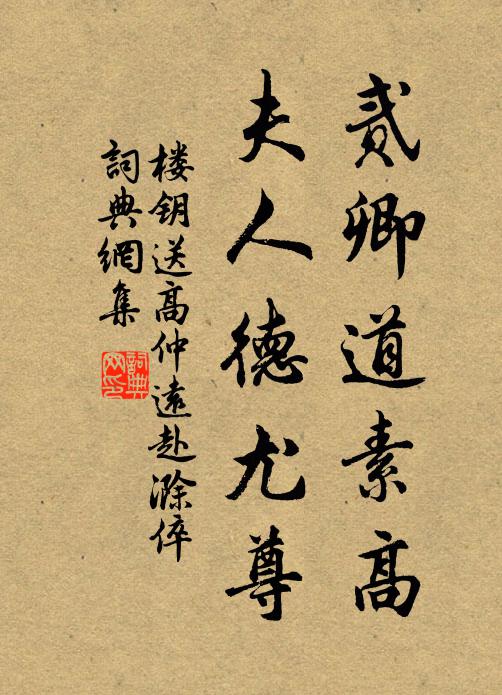 贰卿道素高
夫人德尤尊
楼钥送高仲远赴滁倅
詞典網集
詞典网印